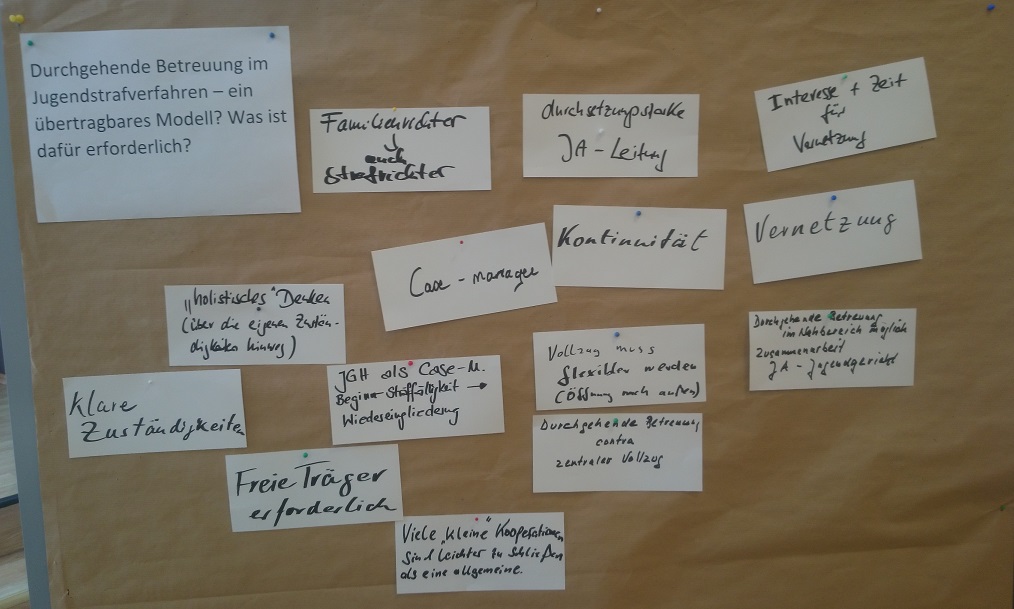 Durchgehende Betreuung im
Jugendstrafverfahren – ein
übertragbares Modell? Was ist
dafür erforderlich?
Familienrichter
auch
Strafrichter
durchsetzungsstarke
JA - Leitung
Interesse + Zeit
für
Vernetzung
Case - manager
Kontinuität
Vernetzung
"holistisches" Denken
(über die eigenen Zustän-
digkeiten hinweg)
Klare
Zuständigkeiten
JGH als Case-M.
Beginn Straffälligkeit →
Wiedereingliederung
Vollzug muss
flexibler werden
(Öffnung nach außen)
Durchgehende Betreuung
im Nahbereich möglich
Zusammenarbeit
JA - Jugendgericht
Durchgehende Betreuung
contra
zentraler Vollzug
Freie Träger
erforderlich
Viele "kleine" Kooperationen
sind leichter zu schließen
als eine allgemeine.